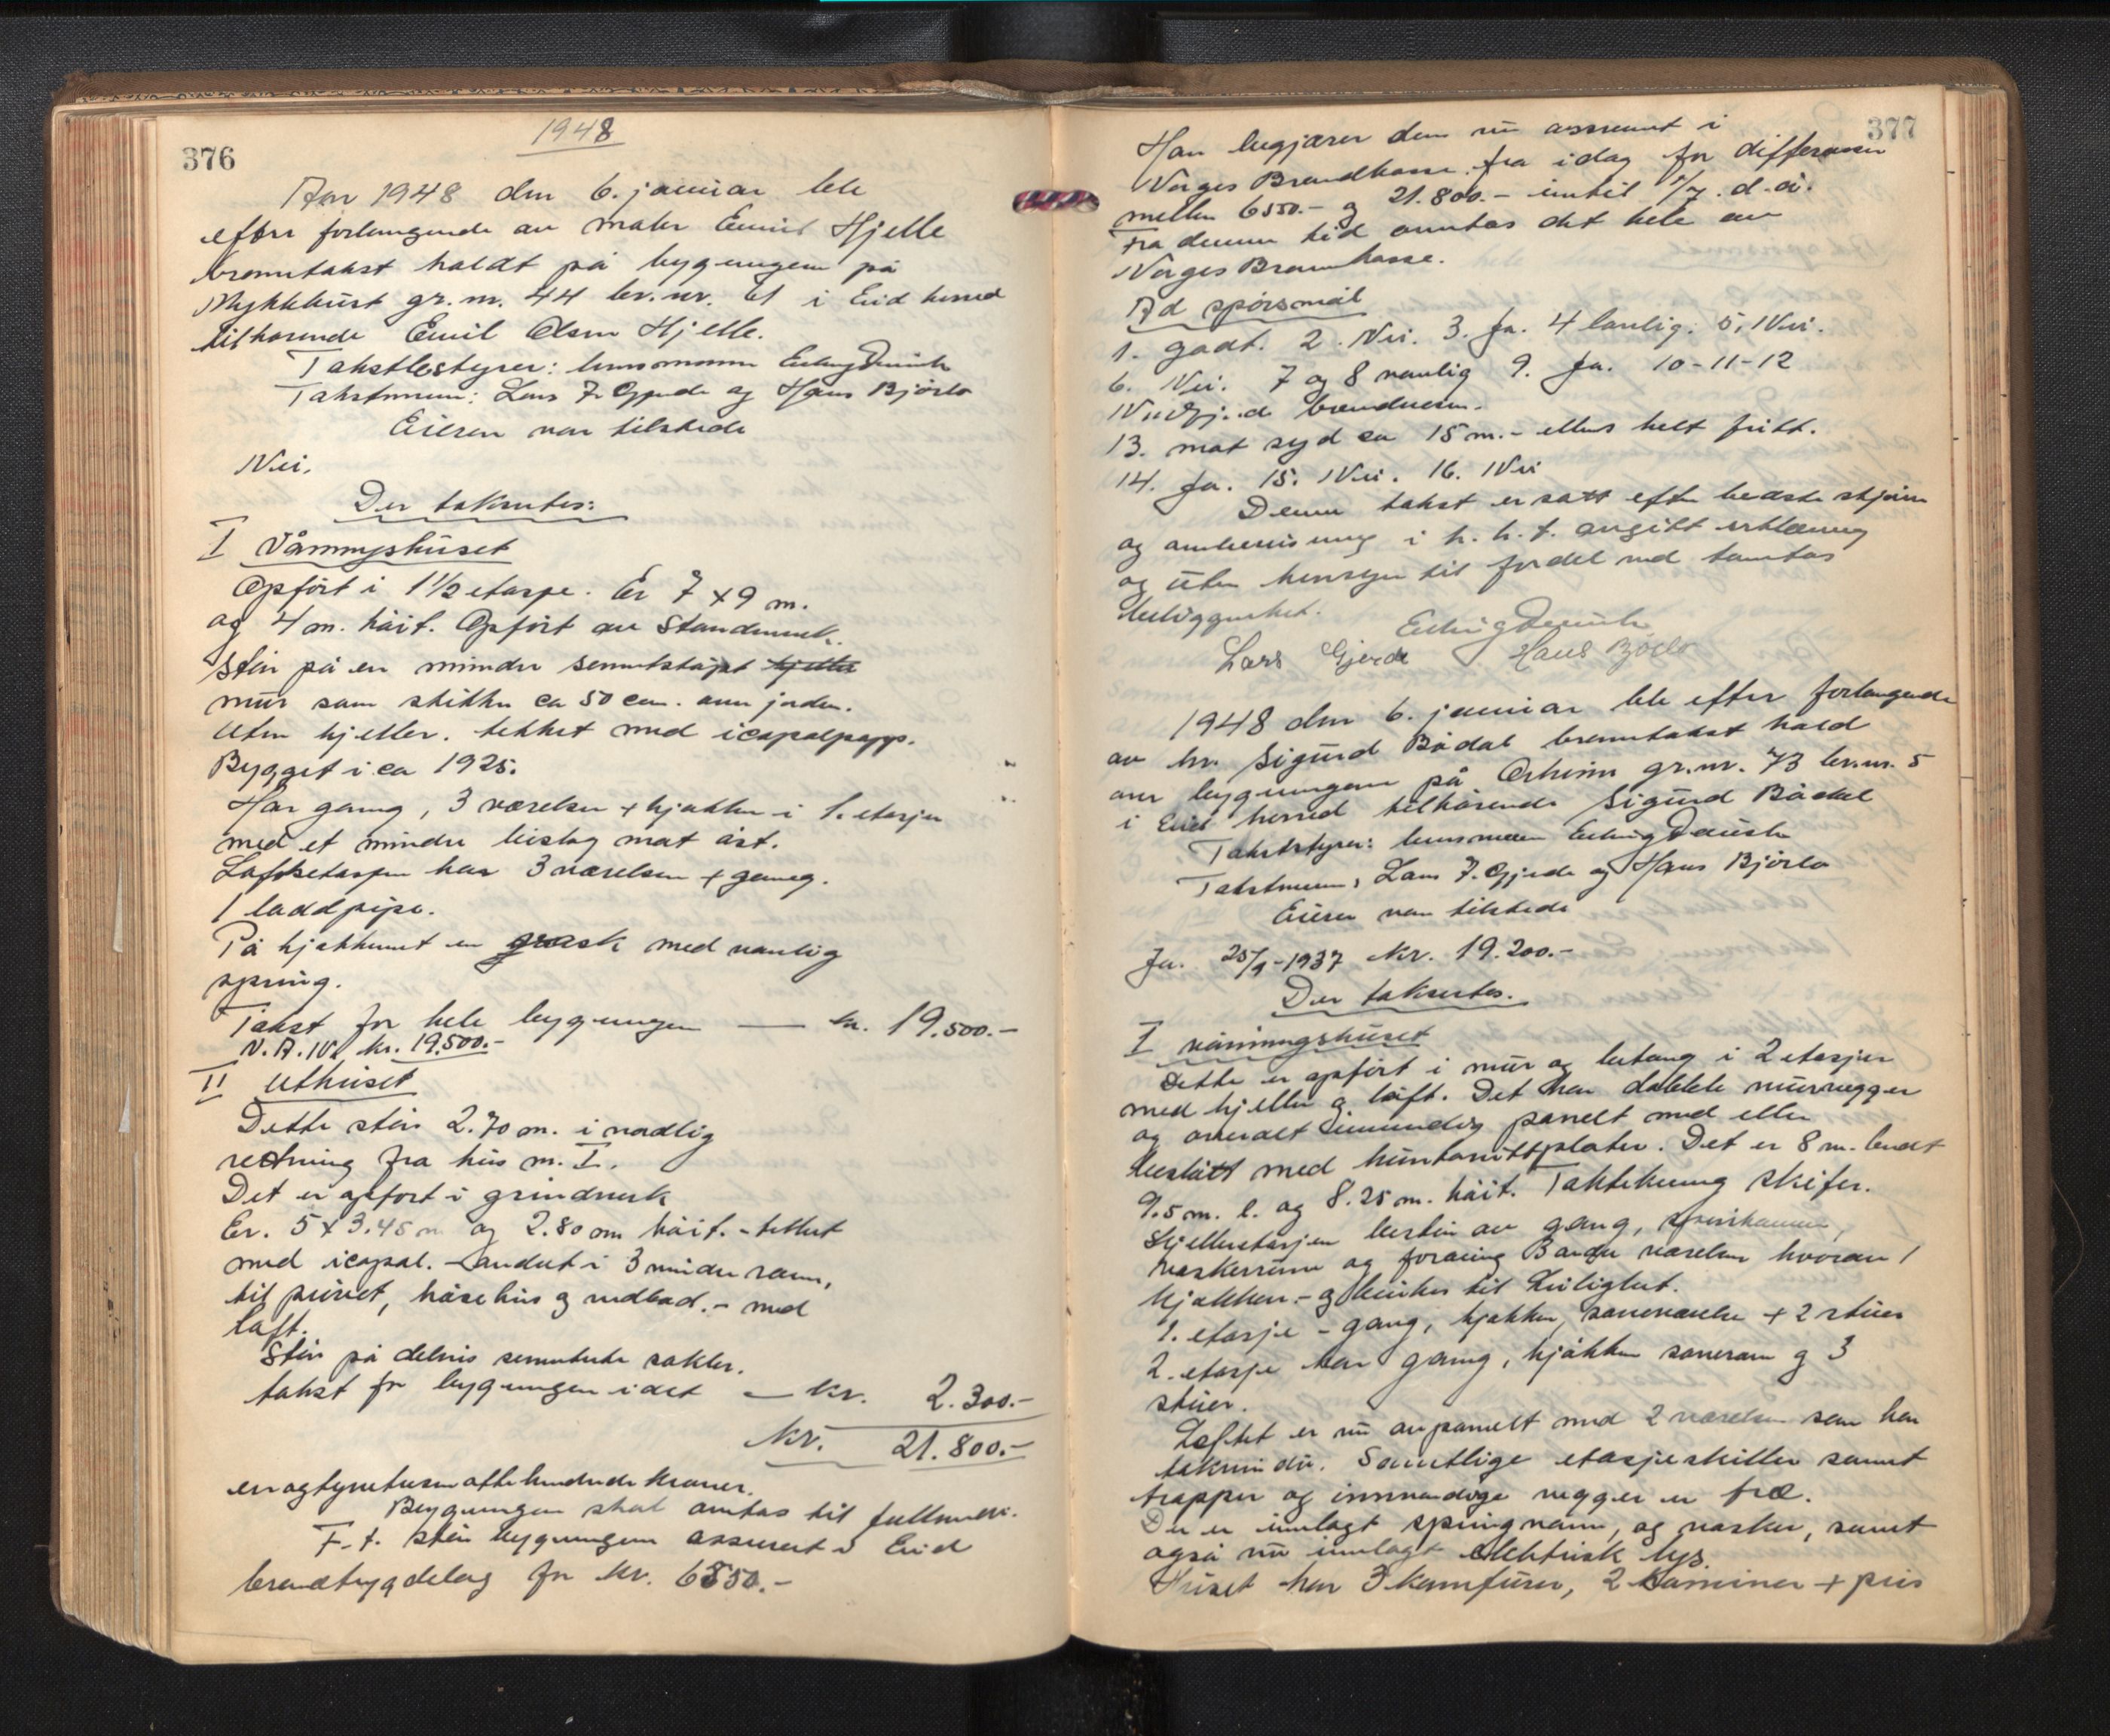 376
1948
Aar 1948 den 6. januar ble
efter forlangende av maler Emil Hjelle
branntakst holdt på bygningen på
Myklebust gr.nr. 44 br.nr. 61 i Eid herred
tilhørende Emil Olsen Hjelle.
Takstbestyrer: lensmann Erling
Takstmenn: Lars J. Gjerde og Hans Bjørlo
Eieren var tilstede
Nei.
Der taksertes:
I Våningshuset
Opført i 1½ etasje. Er 7 x 9 m.
og 4 m. høit. Opført av Standverk.
Står på en mindre sementstøpt kjeller
mur som stikker ca 50 cm. over jorden.
Uten kjeller. tekket med icopalpapp.
Bygget i ca 1925.
Har gang, 3 værelser + kjøkken i 1. etasje
med et mindre bislag mot øst.
Loftsetasjen har 3 værelser + gang.
1 laddpipe.
På kjøkkenet en vask med vanlig
spring.
Takst for hele bygningen — kr. 19.500.-
V.A.W. kr. 19.500.-
II Uthuset
Dette står 2.70 m. i nordlig
retning fra hus nr. I.
Det er opført i grindverk
Er. 5 x 3.45 m og 2.80 m høit. - tekket
med icopal. - Inndelt i 3 mindre rom,
til privet, hønsehus og vedbod. - med
loft.
Står på delvis sementerte sokler.
takst for bygningen idet — kr. 2.300.-
Kr. 21.800.-
en og tyvetusen åttehundrede kroner.
Bygningen skal antas til fullverdi.
F. t. står bygningen assurert i Eid
brandtrygdelag for kr. 6550.-
377
Han begjærer den nu assurert i
Norges Brandkasse fra idag for differansen
mellem 6550.- og 21.800.- inntil 1/7. d.å.
Fra denne tid anntas det hele av
Norges Brannkasse.
Ad spørsmål
1. godt. 2. Nei. 3. Ja. 4 lovlig. 5. Nei.
6. Nei. 7 og 8 vanlig 9. Ja. 10-11-12
brandvesen.
13. mot syd ca 15 m. - ellers helt fritt.
14. Ja. 15. Nei. 16. Nei
Denne takst er satt efter bedste skjønn
og overbevisning i h. h. t. avgitt erklæring
og uten hensyn til fordel ved tomtas
beliggenhet.
Erling
Lars Gjerde Hans Bjørlo
1948 den 6. januar ble efter forlangende
av hr. Sigurd Bødal branntakst hold
over bygningen på gr.nr. 73 br.nr. 5
i Eid herred tilhørende Sigurd Bødal
Takstbestyrer: lensmann Erling
Takstmenn, Lars J. Gjerde og Hans Bjørlo
Eieren var tilstede
Ja. 25/9-1937 kr. 19.200.-
Der taksertes.
I våningshuset
Dette er opført i mur og betong i 2 etasjer
med kjeller og loft. Det har dobbele murvegger
og overalt innvendig panelt med eller
beslått med huntonittplater. Det er 8 m. bredt
9.5 m. l. og 8.25 m. høit. Taktekning skifer.
Kjelleretasjen består av gang,
vaskerum og forøvrig 3 andre værelser hvorav 1
kjøkken - og brukes til Leilighet.
1. etasje - gang, kjøkken, soveværelse + 2 stuer
2. etasje har gang, kjøkken soverom og 3
stuer.
Loftet er nu avpanelt med 2 værelser som har
takvindu. Samtlige etasjeskiller samt
trapper og innvendige vegger er træ.
Der er innlagt springvann, og vasker, samt
også nu innlagt elektrisk lys.
Huset har 3 komfurer, 2 kaminer +